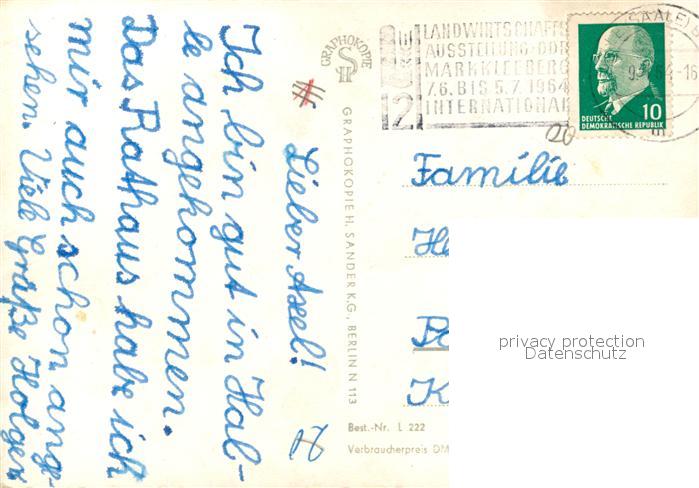 Lieber Axel!
Ich bin gut in Hal-
le angekommen.
Das Rathaus habe ich
mir auch schon ange-
sehen. Viele Grüße Holger
GRAPHOKOPIE
GRAPHOKOPIE H. SANDER K.G., BERLIN N 113
LANDWIRTSCHAFTS
AUSSTELLUNG·DDR
MARKKLEEBERG
7.6. BIS 5.7. 1964
INTERNATIONAL
12
(SAALE)
10
DEUTSCHE
DEMOKRATISCHE REPUBLIK
20
Familie
privacy protection
Datenschutz
Best.-Nr. L 222
Verbraucherpreis DM